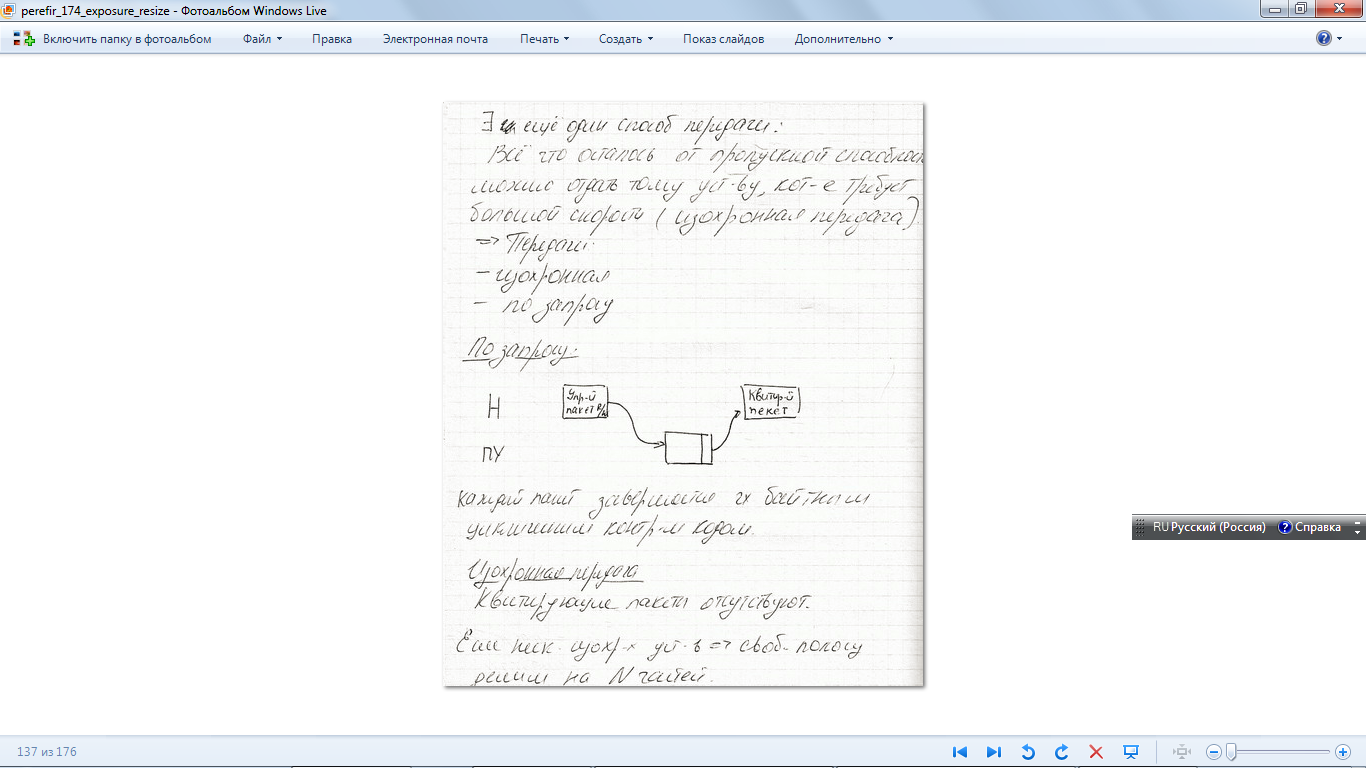 perefir_174_exposure_resize - Фотоальбом Windows Live
Включить папку в фотоальбом Файл Правка Электронная почта Печать Создать Показ слайдов Дополнительно
∃ ещё один способ передачи:
Всё что осталось от пропускной способност
можно отдать тому уст-ву, кот-е требует
большой скорости (изохронная передача).
=> Передачи:
- изохронная
- по запросу
По запросу:
Н
Упр-й
пакет
Квитир-й
пекет
ПУ
RU Русский (Россия) Справка
Каждый пакет завершается 2х байтным
циклическим контр-м кодом.
Изохронная передача
Квитирующие пакеты отсутствуют.
Если неск. изохр-х уст-в => своб. полосу
делим на N частей.
137 из 176